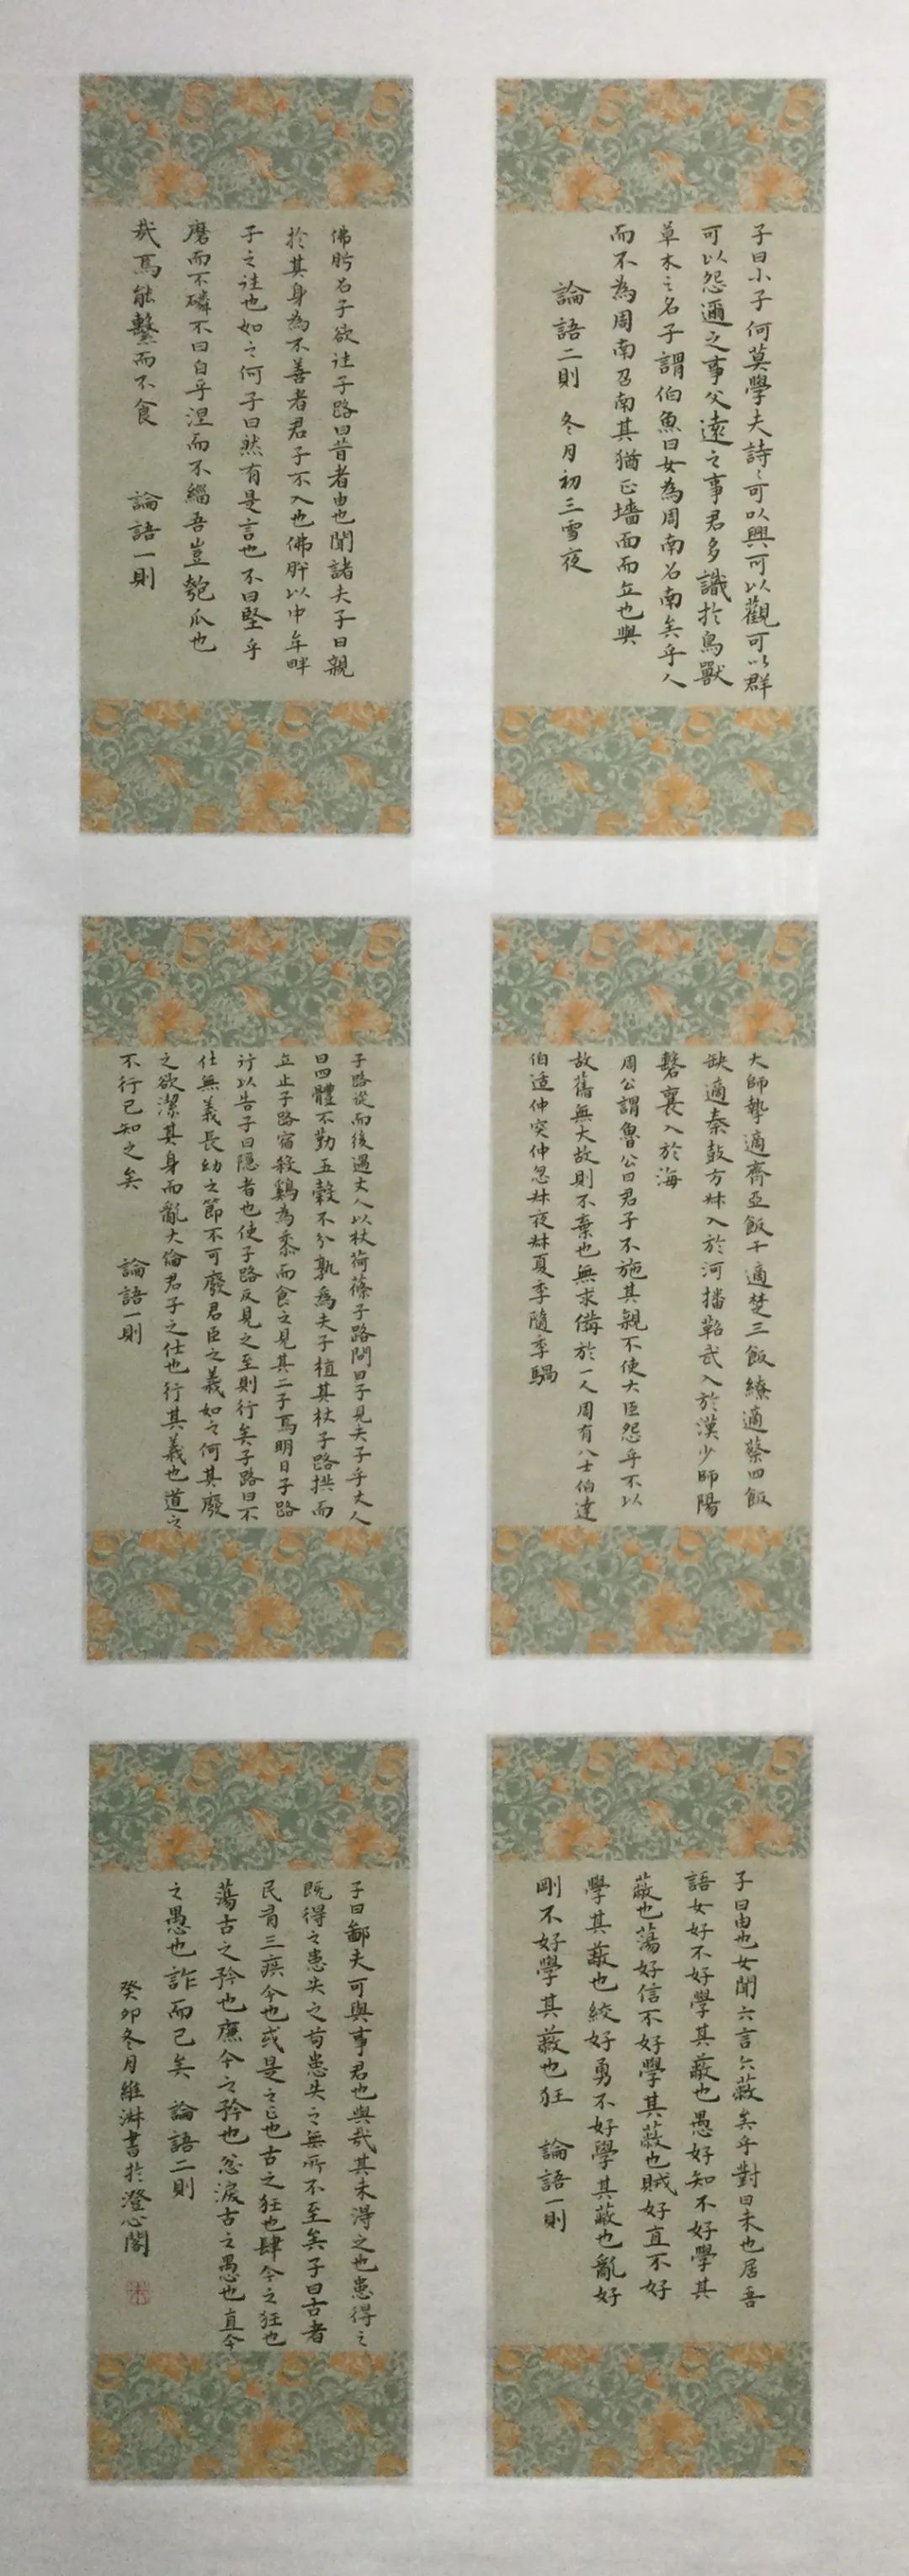 子曰小子何莫學夫詩〻可以興可以觀可以群
可以怨邇之事父遠之事君多識於鳥獸
草木之名子謂伯魚曰女為周南召南矣乎人
而不為周南召南其猶正墻面而立也與
論語二則 冬月初三雪夜
佛肸召子欲往子路曰昔者由也聞諸夫子曰親
於其身為不善者君子不入也佛肸以中牟畔
子之往也如之何子曰然有是言也不曰堅乎
磨而不磷不曰白乎涅而不緇吾豈匏瓜也
哉焉能繫而不食 論語一則
大師摯適齊亞飯干適楚三飯繚適蔡四飯
缺適秦鼓方叔入於河播鞀武入於漢少師陽
磬襄入於海
周公謂魯公曰君子不施其親不使大臣怨乎不以
故舊無大故則不棄也無求備於一人周有八士伯達
伯适仲突仲忽叔夜叔夏季隨季騧
子路從而後遇丈人以杖荷蓧子路問曰子見夫子乎丈人
曰四體不勤五穀不分孰為夫子植其杖子路拱而
立止子路宿殺鷄為黍而食之見其二子焉明日子路
行以告子曰隱者也使子路反見之至則行矣子路曰不
仕無義長幼之節不可廢君臣之義如之何其廢
之欲潔其身而亂大倫君子之仕也行其義也道之
不行已知之矣 論語一則
子曰由也女聞六言六蔽矣乎對曰未也居吾
語女好不好學其蔽也愚好知不好學其
蔽也蕩好信不好學其蔽也賊好直不好
學其蔽也絞好勇不好學其蔽也亂好
剛不好學其蔽也狂 論語一則
子曰鄙夫可與事君也與哉其未得之也患得之
既得之患失之苟患失之無所不至矣子曰古者
民有三疾今也或是之亡也古之狂也肆今之狂也
蕩古之矜也廉今之矜也忿淚古之愚也直今
之愚也詐而已矣 論語二則
癸卯冬月維淋書於澄心閣